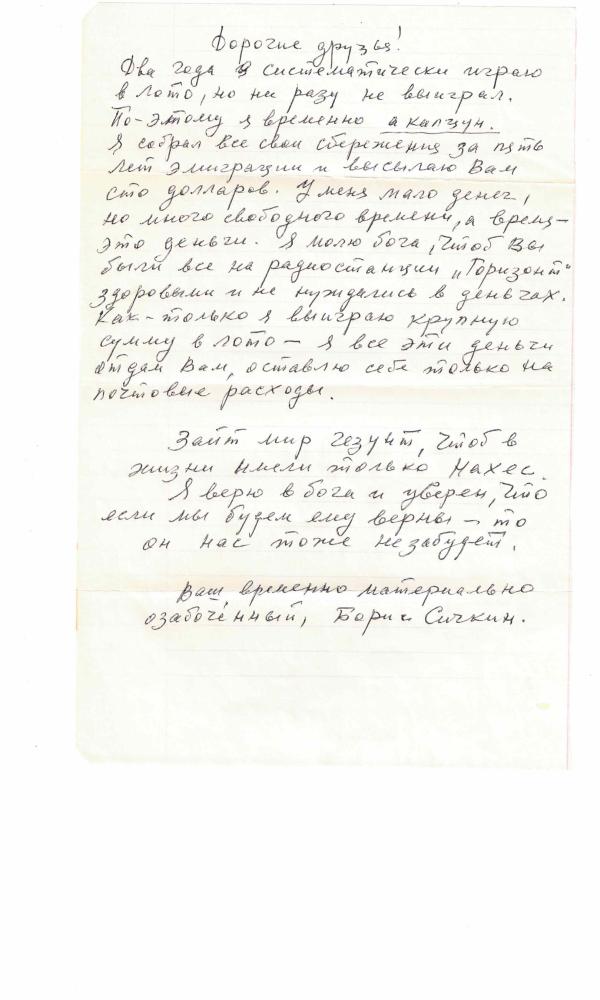 Дорогие друзья!
Два года я систематически играю
в лото, но ни разу не выиграл.
По-этому я временно а капцун.
Я собрал все свои сбережения за пять
лет эмиграции и высылаю Вам
сто долларов. У меня мало денег,
но много свободного времени, а время-
это деньги. Я молю бога, чтоб Вы
были все на радиостанции „Горизонт"
здоровыми и не нуждались в деньгах.
Как-только я выиграю крупную
сумму в лото - я все эти деньги
отдам Вам, оставлю себе только на
почтовые расходы.
Зайт мир гезунт, чтоб в
жизни имели только Нахес.
Я верю в бога и уверен, что
если мы будем ему верны - то
он нас тоже незабудет.
Ваш временно материально
озабоченный, Борис Сичкин.